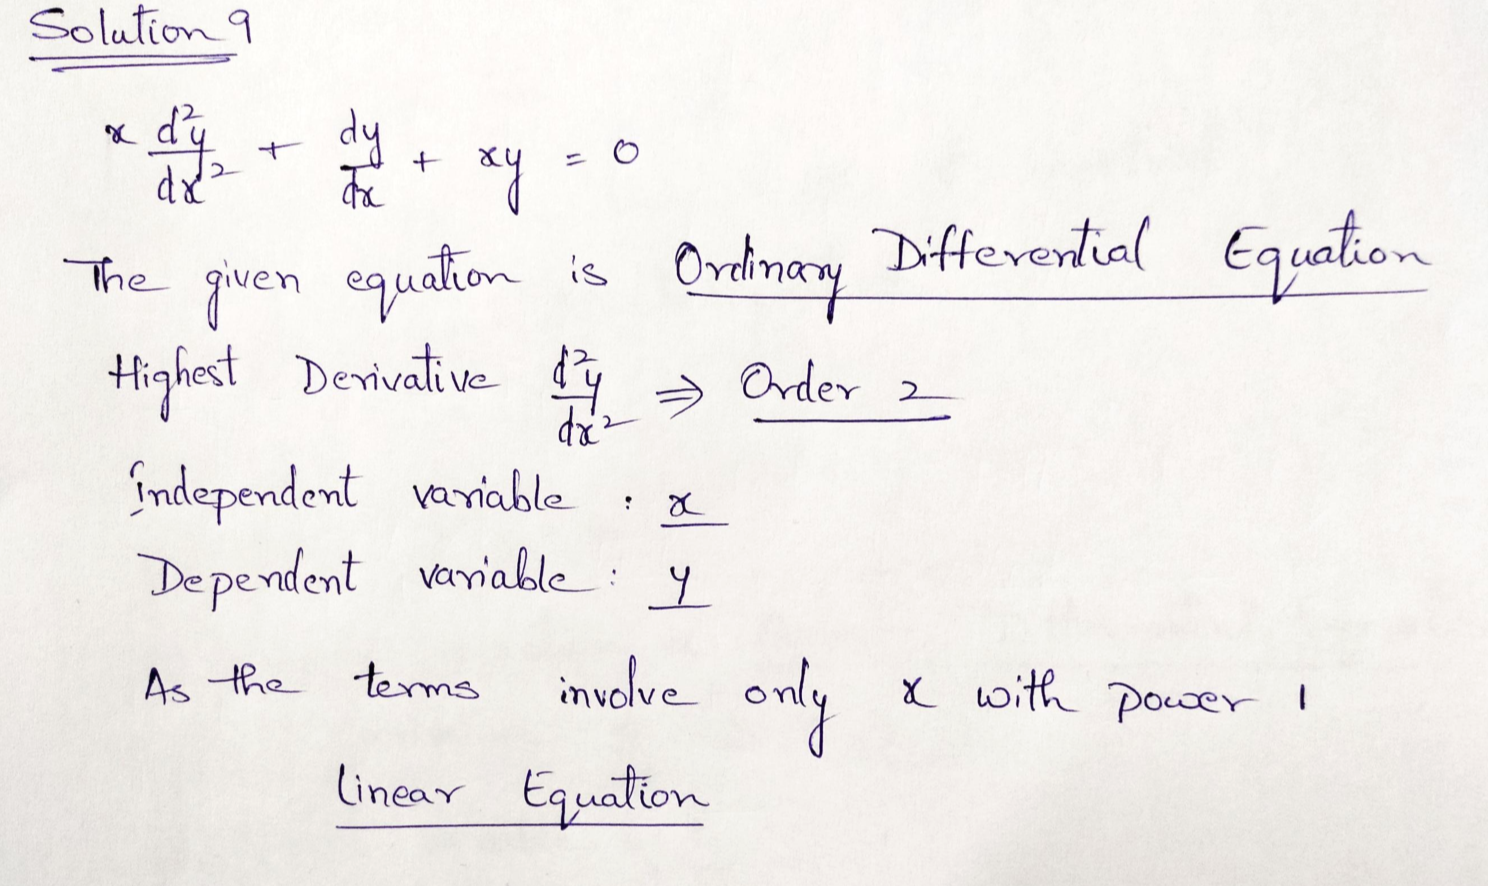 Solution 9
x d²y/dx² + dy/dx + xy = 0
The given equation is Ordinary Differential Equation
Highest Derivative d²y/dx² ⇒ Order 2
independent variable : x
Dependent variable : y
As the terms involve only x with power 1
linear Equation